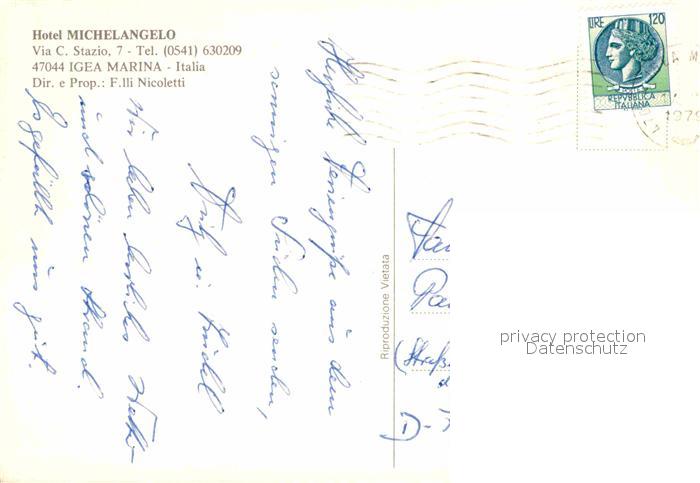 Hotel MICHELANGELO
Via C. Stazio, 7 - Tel. (0541) 630209
47044 IGEA MARINA - Italia
Dir. e Prop.: F.lli Nicoletti
LIRE 120
REPVBBLICA
ITALIANA
1979
Herzliche Feriengrüße aus dem
sonnigen Süden senden,
Wir haben herrliches Wetter
und schönen Strand.
Es gefällt uns gut.
Riproduzione Vietata
(Straß
D-
privacy protection
Datenschutz